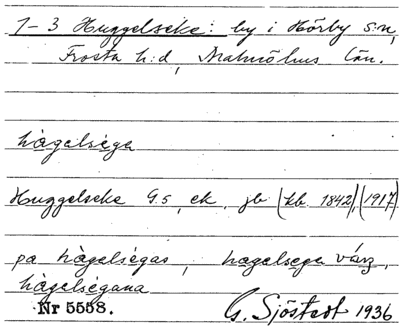 1-3 Huggelseke: by i Hörby s:n,
Frosta h:d, Malmöhus län.
hàgelsèga
Huggelseke G.5, ek. jb (kb. 1842), (1917)
pa hàgelsègas, hagelsega vång,
hàgelsègana
Nr 5558.
G. Sjöstedt 1936